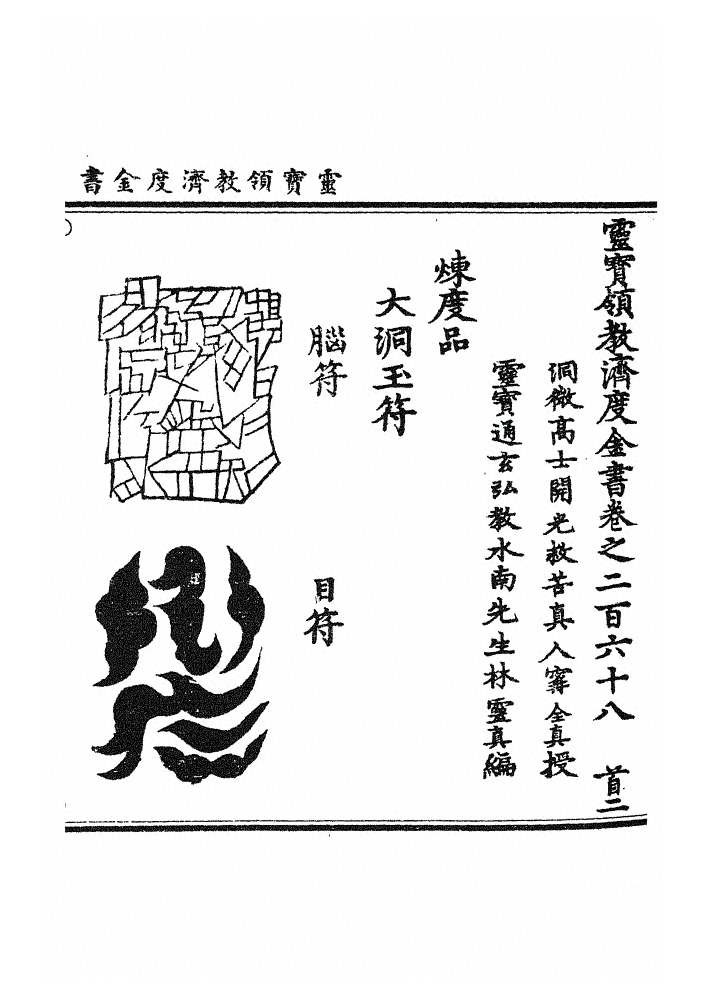 靈寶領教濟度金書
靈寶領教濟度金書卷之二百六十八　首二
洞微高士開光救苦真人寗全真授
靈寶通玄弘教水南先生林靈真編
煉度品
大洞玉符
腦符
目符